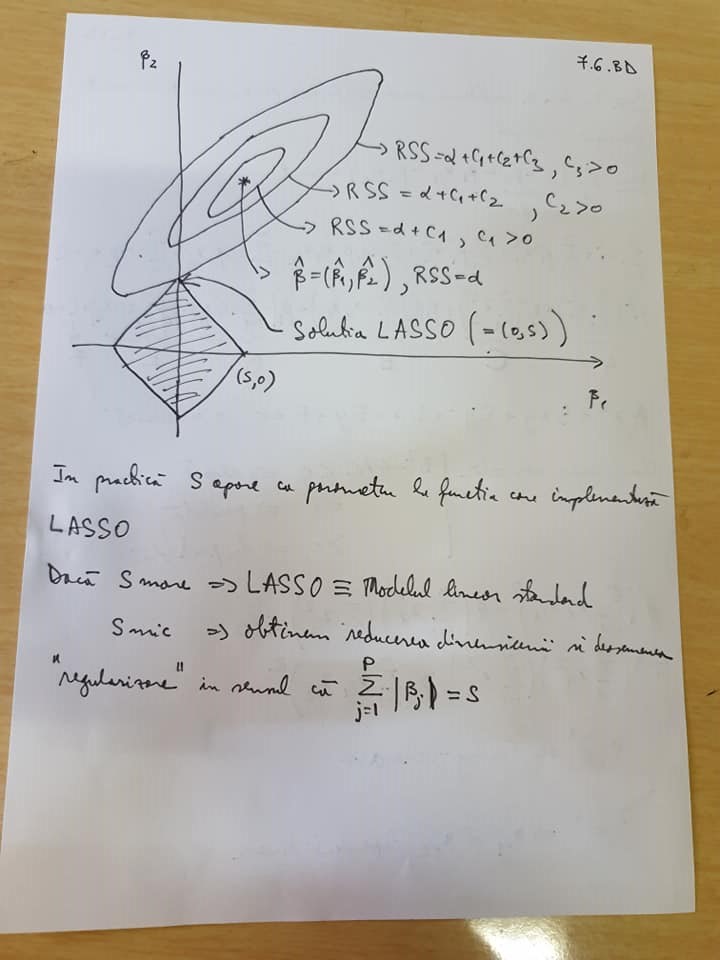 7.6.BD
β2
RSS=α+C1+C2+C3, C3>0
RSS = α+C1+C2, C2>0
RSS=α+C1, C1>0
β̂=(β̂1,β̂2), RSS=α
Solutia LASSO (=(0,S))
(S,0)
β1
In practică S apare ca parametru la functia care implementează
LASSO
Dacă S mare => LASSO ≡ Modelul liniar standard
S mic => obtinem reducerea dimensiunii si deasemenea
"regularizare" in sensul că ∑_{j=1}^{P} |βj| = S